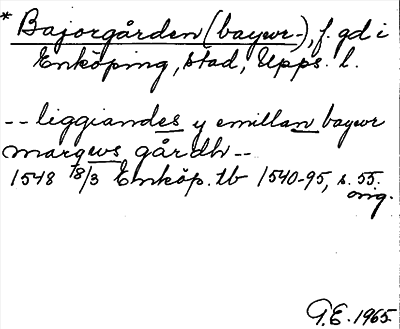 * Bajorgården (baywr-), f. gd i
Enköping, stad, Upps. l.
-- liggiandes y emillan baywr
marqws gårdh --
1548 18/3 Enköp. tb 1540-95, s. 55.
orig.
G.E. 1965.